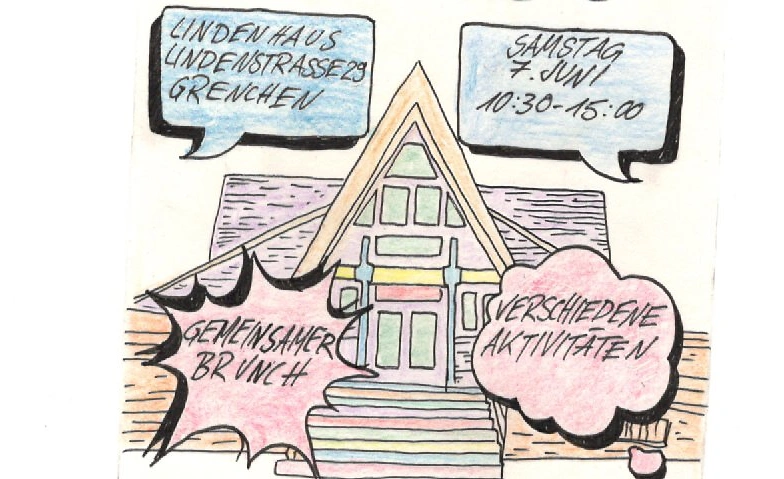 LINDENHAUS
LINDENSTRASSE 29
GRENCHEN
SAMSTAG
7. JUNI
10:30-15:00
GEMEINSAMER
BRUNCH
VERSCHIEDENE
AKTIVITÄTEN